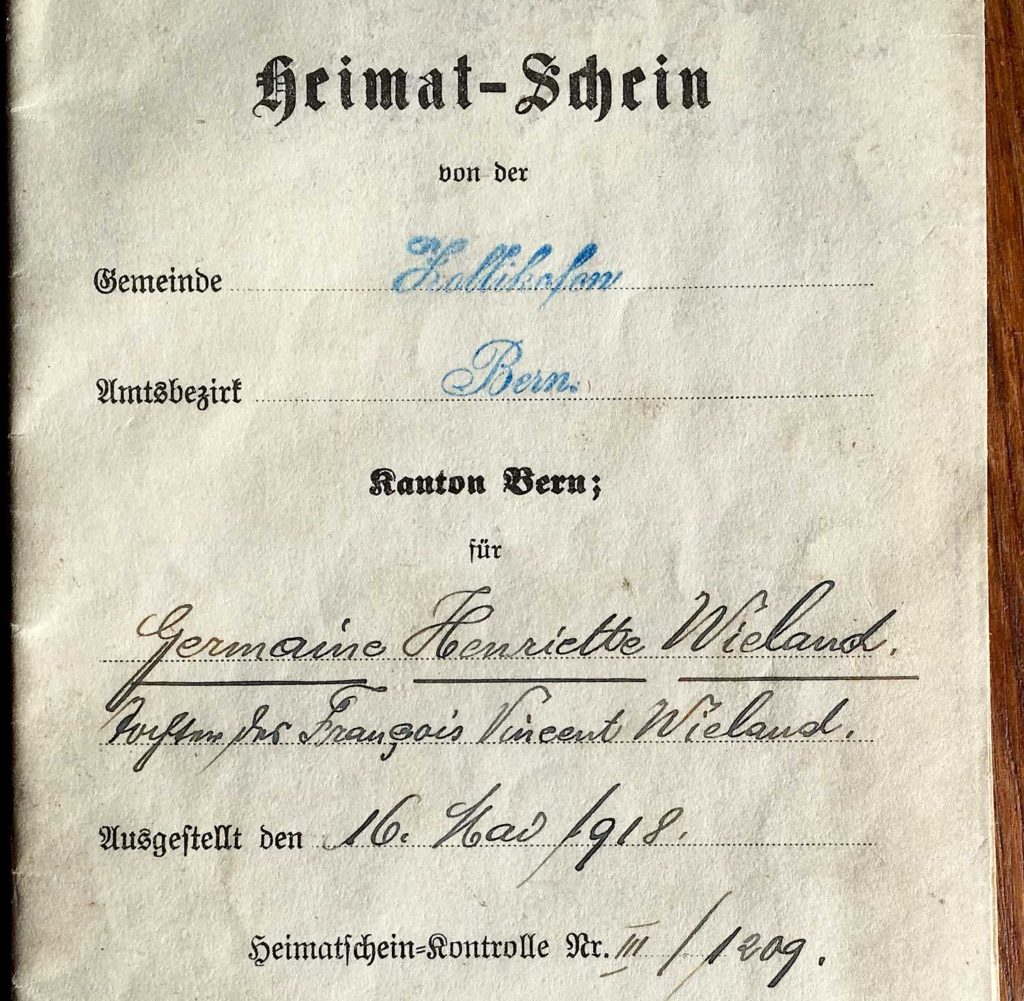 Heimat-Schein
von der
Gemeinde Zollikofen
Amtsbezirk Bern.
Kanton Bern;
für
Germaine Henriette Wieland.
Tochter des François Vincent Wieland.
Ausgestellt den 16. Mai 1918.
Heimatschein-Kontrolle Nr. III / 1209.